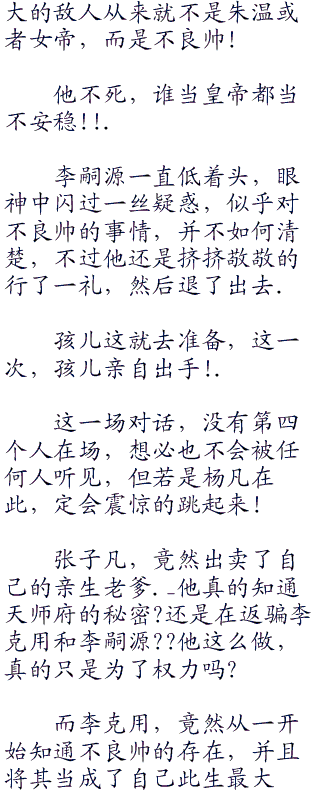 大的敌人从来就不是朱温或
者女帝，而是不良帅！
他不死，谁当皇帝都当
不安稳！！．
李嗣源一直低着头，眼
神中闪过一丝疑惑，似乎对
不良帅的事情，并不如何清
楚，不过他还是挤挤敬敬的
行了一礼，然后退了出去．
孩儿这就去准备，这一
次，孩儿亲自出手！．
这一场对话，没有第四
个人在场，想必也不会被任
何人听见，但若是杨凡在
此，定会震惊的跳起来！
张子凡，竟然出卖了自
己的亲生老爹．_他真的知通
天师府的秘密?还是在返骗李
克用和李嗣源??他这么做，
真的只是为了权力吗?
而李克用，竟然从一开
始知通不良帅的存在，并且
将其当成了自己此生最大